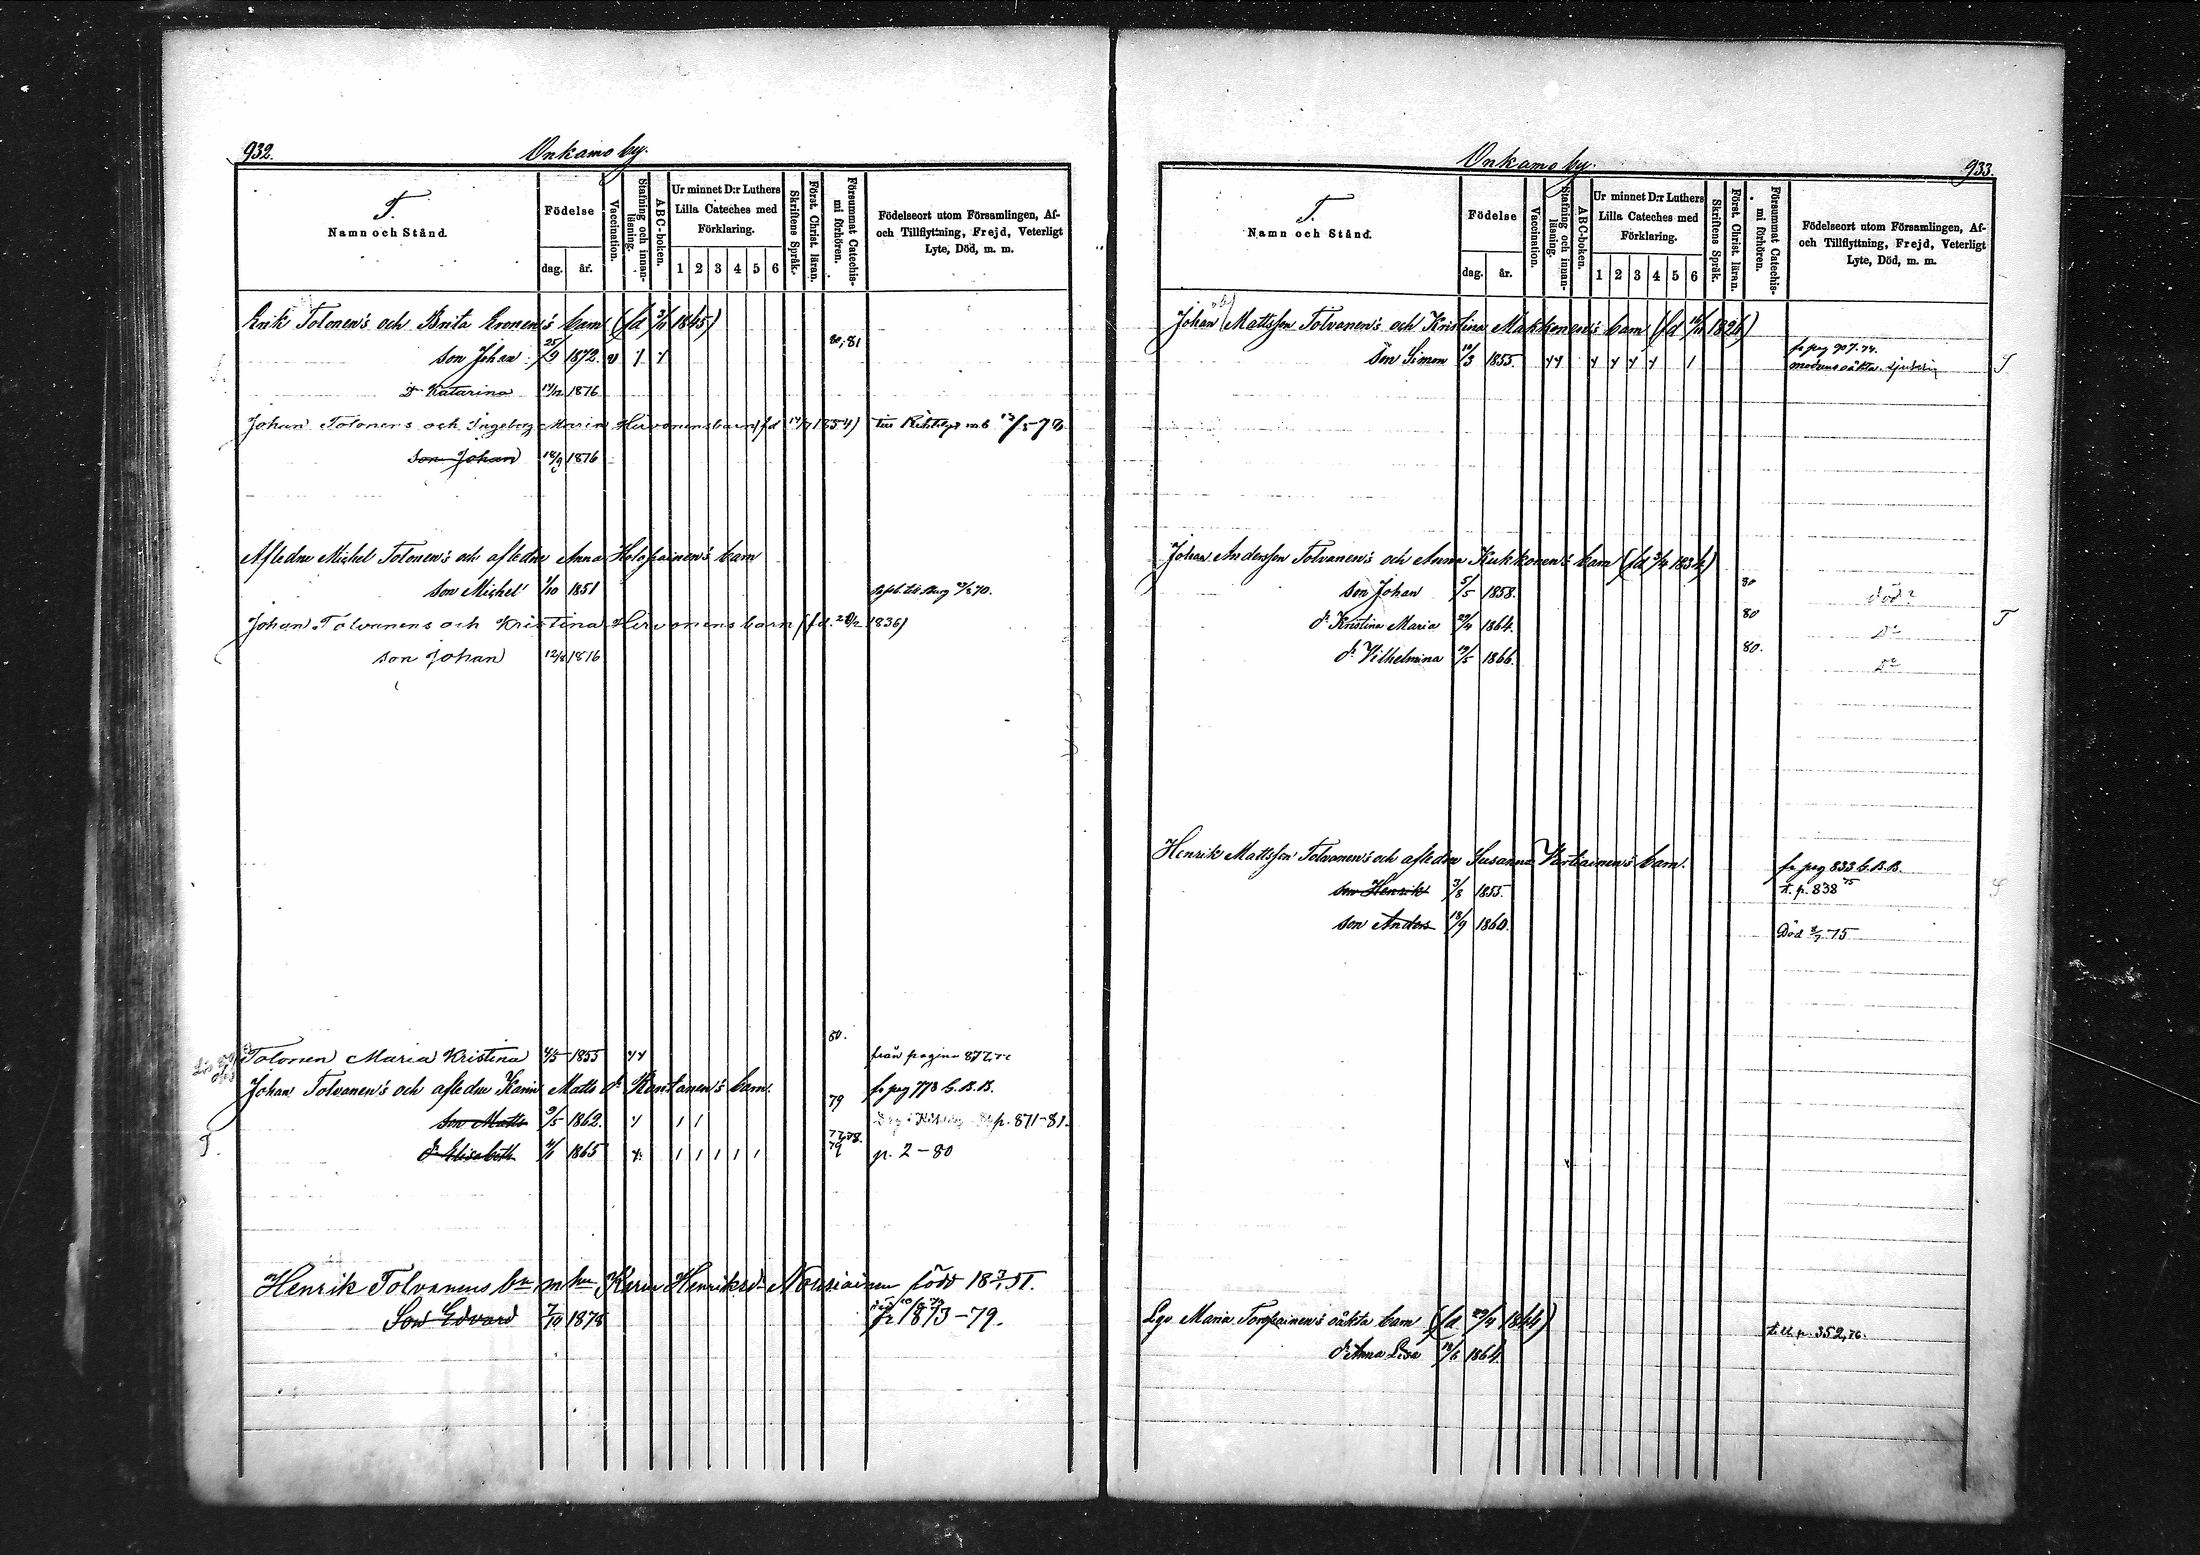 932.
Onkamo by.
T.
Namn och Stånd.
Födelse
dag. år.
Vaccination.
Stafning och innanläsning.
ABC-boken.
Ur minnet D:r Luthers Lilla Cateches med Förklaring.
1 2 3 4 5 6
Skriftens Språk.
Förest. Christ. läran.
Försummat Catechismi förhören.
Födelseort utom Församlingen, Af- och Tillflyttning, Frejd, Veterligt Lyte, Död, m. m.
Erik Tolonen's och Brita Eronen's barn (fd 3/11 1845)
son Johan 25/9 1872. v / / 80,81
dr Katarina 1876
Johan Tolonens och Ingeborg Maria Hirvonens barn (fd 1854)
son Johan 18/9 1876
Afledne Michel Tolonen's och afledne Anna Holopainen's barn
son Michel 1/10 1851
Johan Tolvanens och Kristina Hirvonens barn (fd. 1836)
son Johan 12/8 1876
80.
Tolonen Maria Kristina 4/5 1855 från pagina 877
Johan Tolvanen's och afledne Karin Matts dr Rantanen's barn. fr pag 773 k.B.B.
79
son Matts 9/5 1862. p. 871-81.
77,78.
79
dr Elisabeth 1865 p. 2-80
Henrik Tolvanens bn m hu Karin Henriksdr Nousiainen född 18 51.
Son Edvard 7/10 1878 1873-79.
933.
Onkamo by.
T.
Namn och Stånd.
Födelse
dag. år.
Vaccination.
Stafning och innanläsning.
ABC-boken.
Ur minnet D:r Luthers Lilla Cateches med Förklaring.
1 2 3 4 5 6
Skriftens Språk.
Förest. Christ. läran.
Försummat Catechismi förhören.
Födelseort utom Församlingen, Af- och Tillflyttning, Frejd, Veterligt Lyte, Död, m. m.
Johan Mattsson Tolvanen's och Kristina Makkonen's barn (fd 1826)
fr pag 907.74.
Son Simon 10/3 1855. modrens oäkta.
Johan Andersson Tolvanen's och Anna Kukkonen's barn (fd 3/4 1834)
son Johan 5/5 1858. 80 död?
dr Kristina Maria 29/4 1864. 80 Do
dr Vilhelmina 19/5 1866. 80. Do
Henrik Mattsson Tolvanen's och afledne Susanna Vartiainen's barn. fr pag 833 k.B.B.
son Henrik 3/8 1855. t. p. 838 75
son Anders 18/9 1860. Död 8/7 75
Lgo Maria Toropainen's oäkta barn (fd 29/4 1844) till p. 352,76.
dr Anna Lisa 18/6 1864.